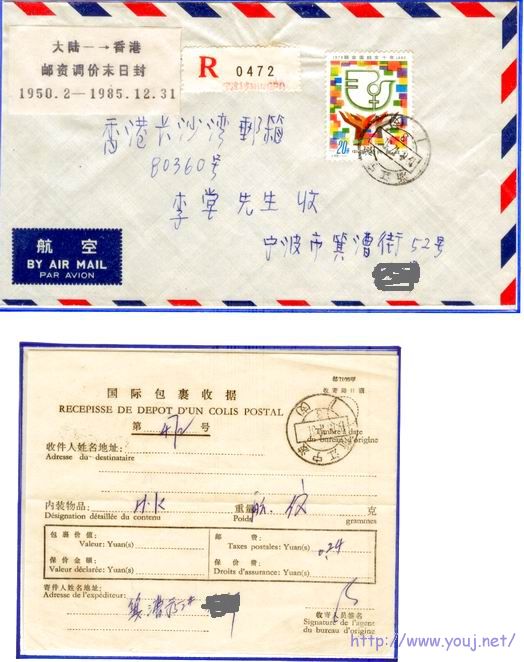 大陆—→香港
邮资调价末日封
1950.2—1985.12.31
R 0472
20分
香港长沙湾郵箱
80360号
李堂先生收
宁波市箕漕街52号
航空
BY AIR MAIL
PAR AVION
国际包裹收据
RECEPISSE DE DEPOT D'UN COLIS POSTAL
第 472 号
收寄局日戳
Timbre à date
du bureau d'origine
收件人姓名地址:
Adresse du destinataire
内装物品: H.K 重量: 航. 克
Désignation détaillée du contenu Poids grammes
包裹价值: 邮费:
Valeur: Yuan(s) Taxes postales: Yuan(s) 0.24
保价金额: 保价费:
Valeur déclarée: Yuan(s) Droits d'assurance: Yuan(s)
寄件人姓名地址:
Adresse de l'expéditeur:
收寄人员签名
Signature de l'agent
du bureau d'origine
http://www.youj.net/